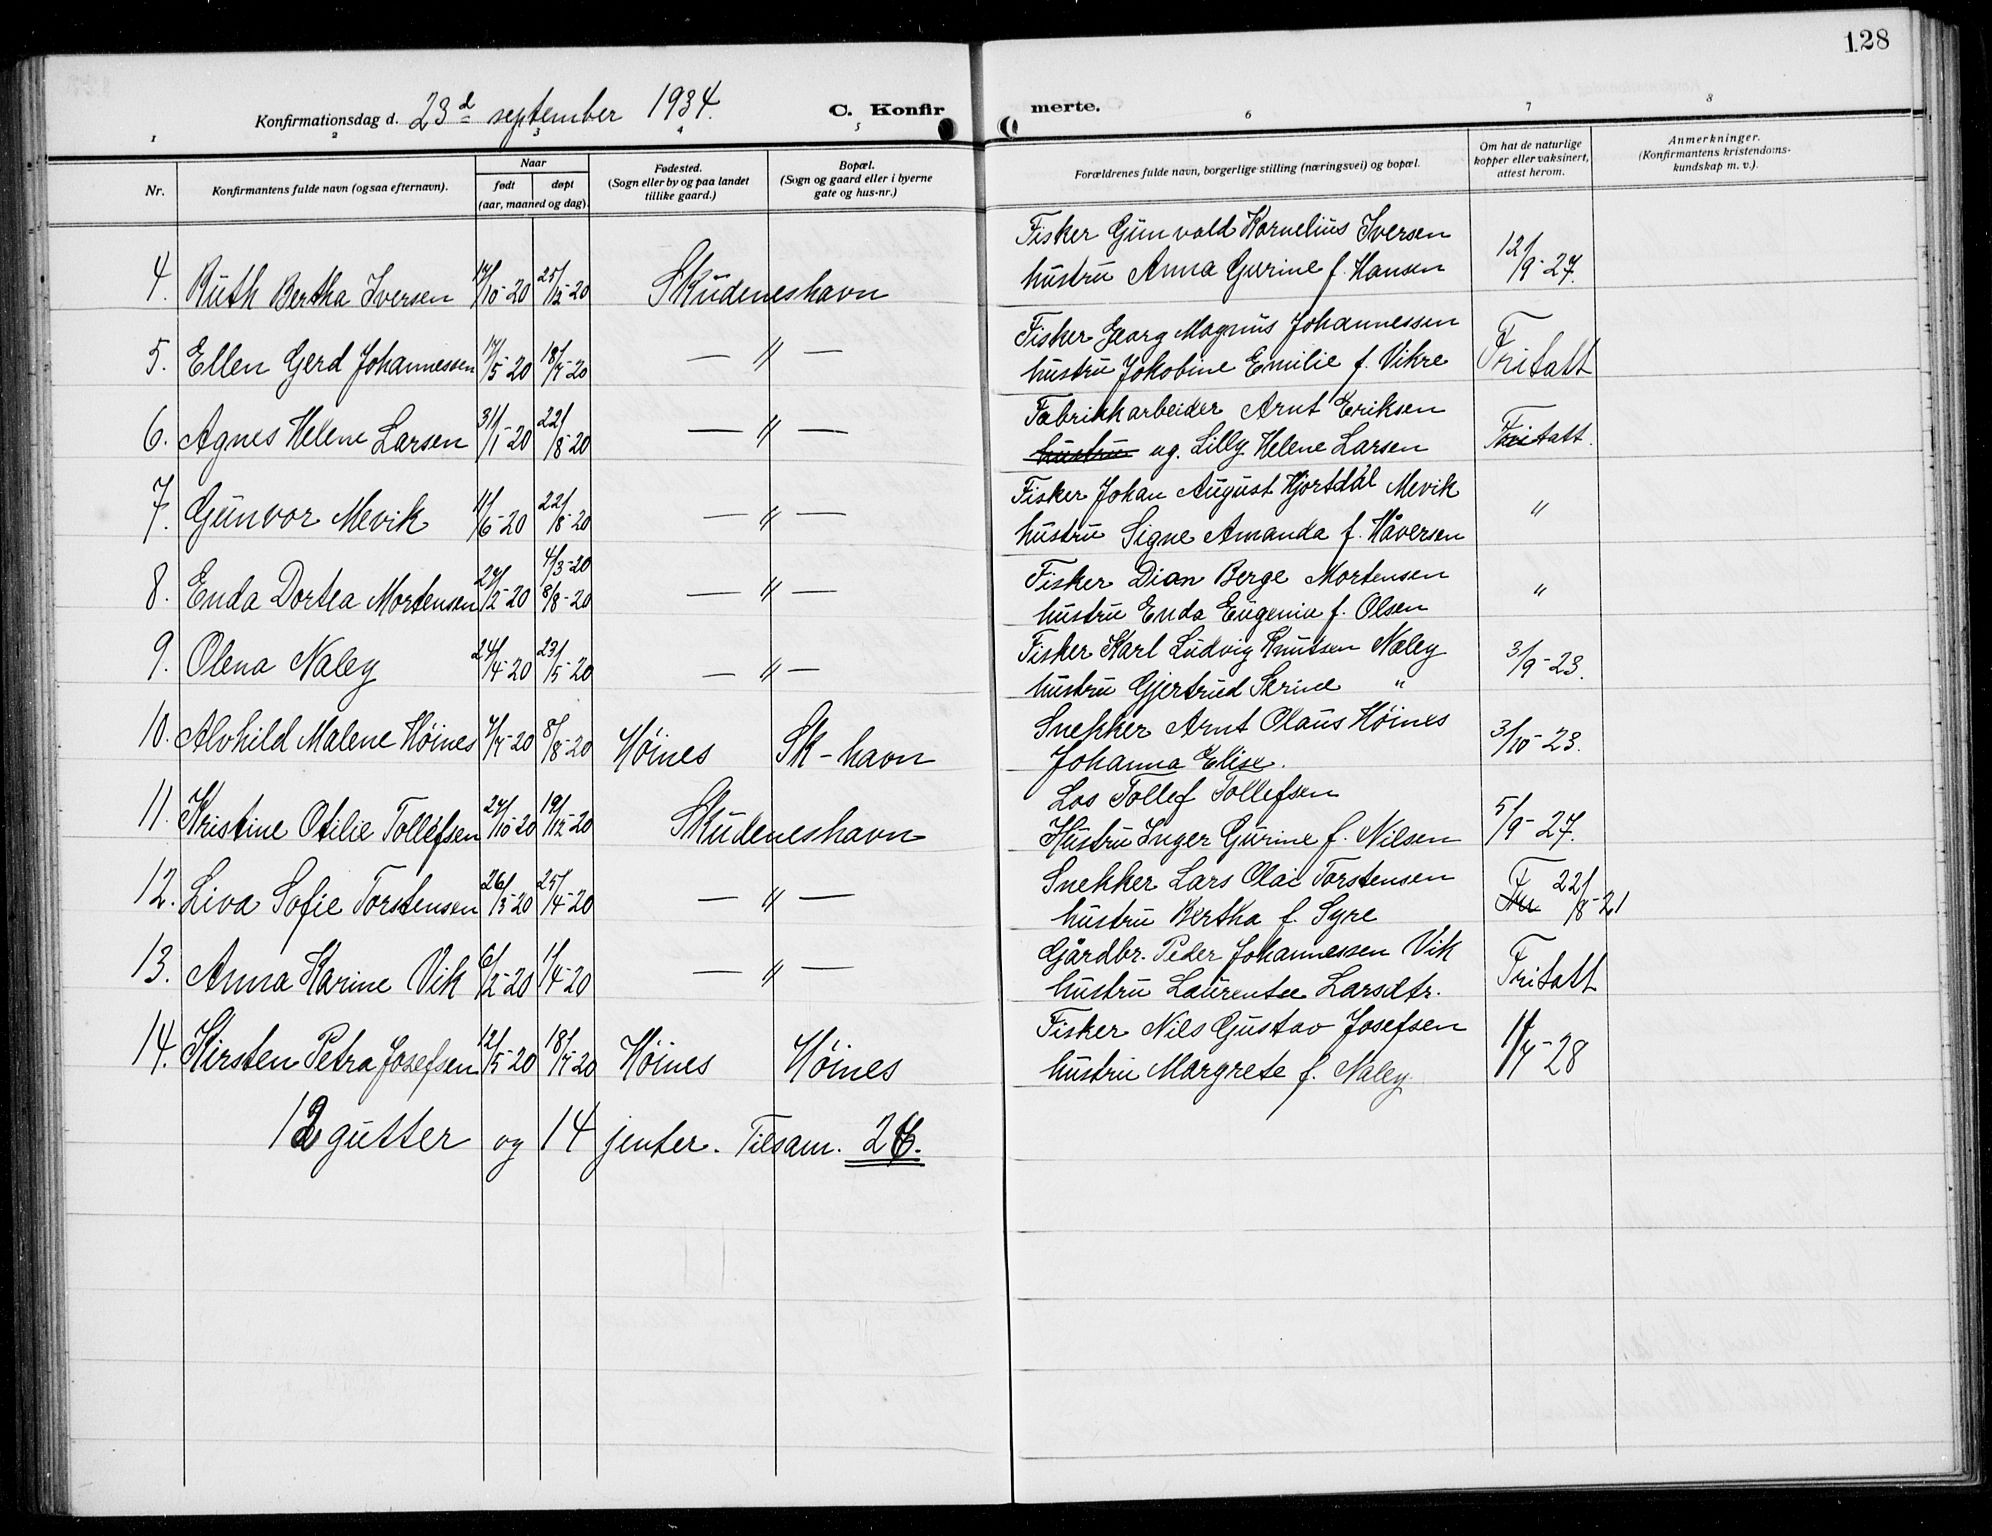 128
Konfirmationsdag d. 23d september 1934. C. Konfirmerte.
1 2 3 4 5 6 7 8
Nr. Konfirmantens fulde navn (ogsaa efternavn). Naar født døpt (aar, maaned og dag). Fødested. (Sogn eller by og paa landet tillike gaard.) Bopæl. (Sogn og gaard eller i byerne gate og hus-nr.) Forældrenes fulde navn, borgerlige stilling (næringsvei) og bopæl. Om hat de naturlige kopper eller vaksinert, attest herom. Anmerkninger. (Konfirmantens kristendoms-kundskap m. v.).
Fisker Gunvald Kornelius Iversen
4. Ruth Bertha Iversen 17/10-20 25/12-20 Skudeneshavn hustru Anna Gurine f. Hansen 12/9-27.
Fisker Georg Magnus Johannessen
5. Ellen Gerd Johannessen 17/5-20 18/7-20 — " — hustru Jokobine Emilie f. Vikre Fritatt
Fabrikkarbeider Arnt Eriksen
6. Agnes Helene Larsen 31/1-20 22/8-20 — " — hustru ug. Lilly Helene Larsen Fritatt.
Fisker Johan August Hjortdal Mevik
7. Gunvor Mevik 11/6-20 22/8-20 — " — hustru Signe Amanda f. Håversen "
4/3-20 Fisker Dian Berge Mortensen
8. Enda Dortea Mortensen 27/2-20 8/8-20 — " — hustru Enda Eugenia f. Olsen "
Fisker Karl Ludvig Knutsen Naley
9. Olena Naley 24/4-20 23/5-20 — " — hustru Gjertrud Serine " 3/9-23.
Snekker Arnt Olaus Höines
10. Alvhild Malene Höines 7/7-20 8/8-20 Höines Sk-havn Johanna Elise. 3/10-23.
Los Tollef Tollefsen
11. Kristine Otilie Tollefsen 27/10-20 19/12-20 Skudeneshavn Hustru Inger Gurine f. Nilsen 5/9-27.
Snekker Lars Olai Torstensen
12. Liva Sofie Torstensen 26/3-20 25/4-20 — " — hustru Bertha f. Syre 22/8-21
Gårdbr. Peder Johannessen Vik
13. Anna Karine Vik 6/2-20 1/4-20 — " — hustru Laurentse Larsdtr. Fritatt
Fisker Nils Gustav Josefsen
14. Kirsten Petra Josefsen 12/5-20 18/7-20 Höines Höines hustru Margrete f. Naley 11/7-28
12 gutter og 14 jenter. Tilsam. 26.